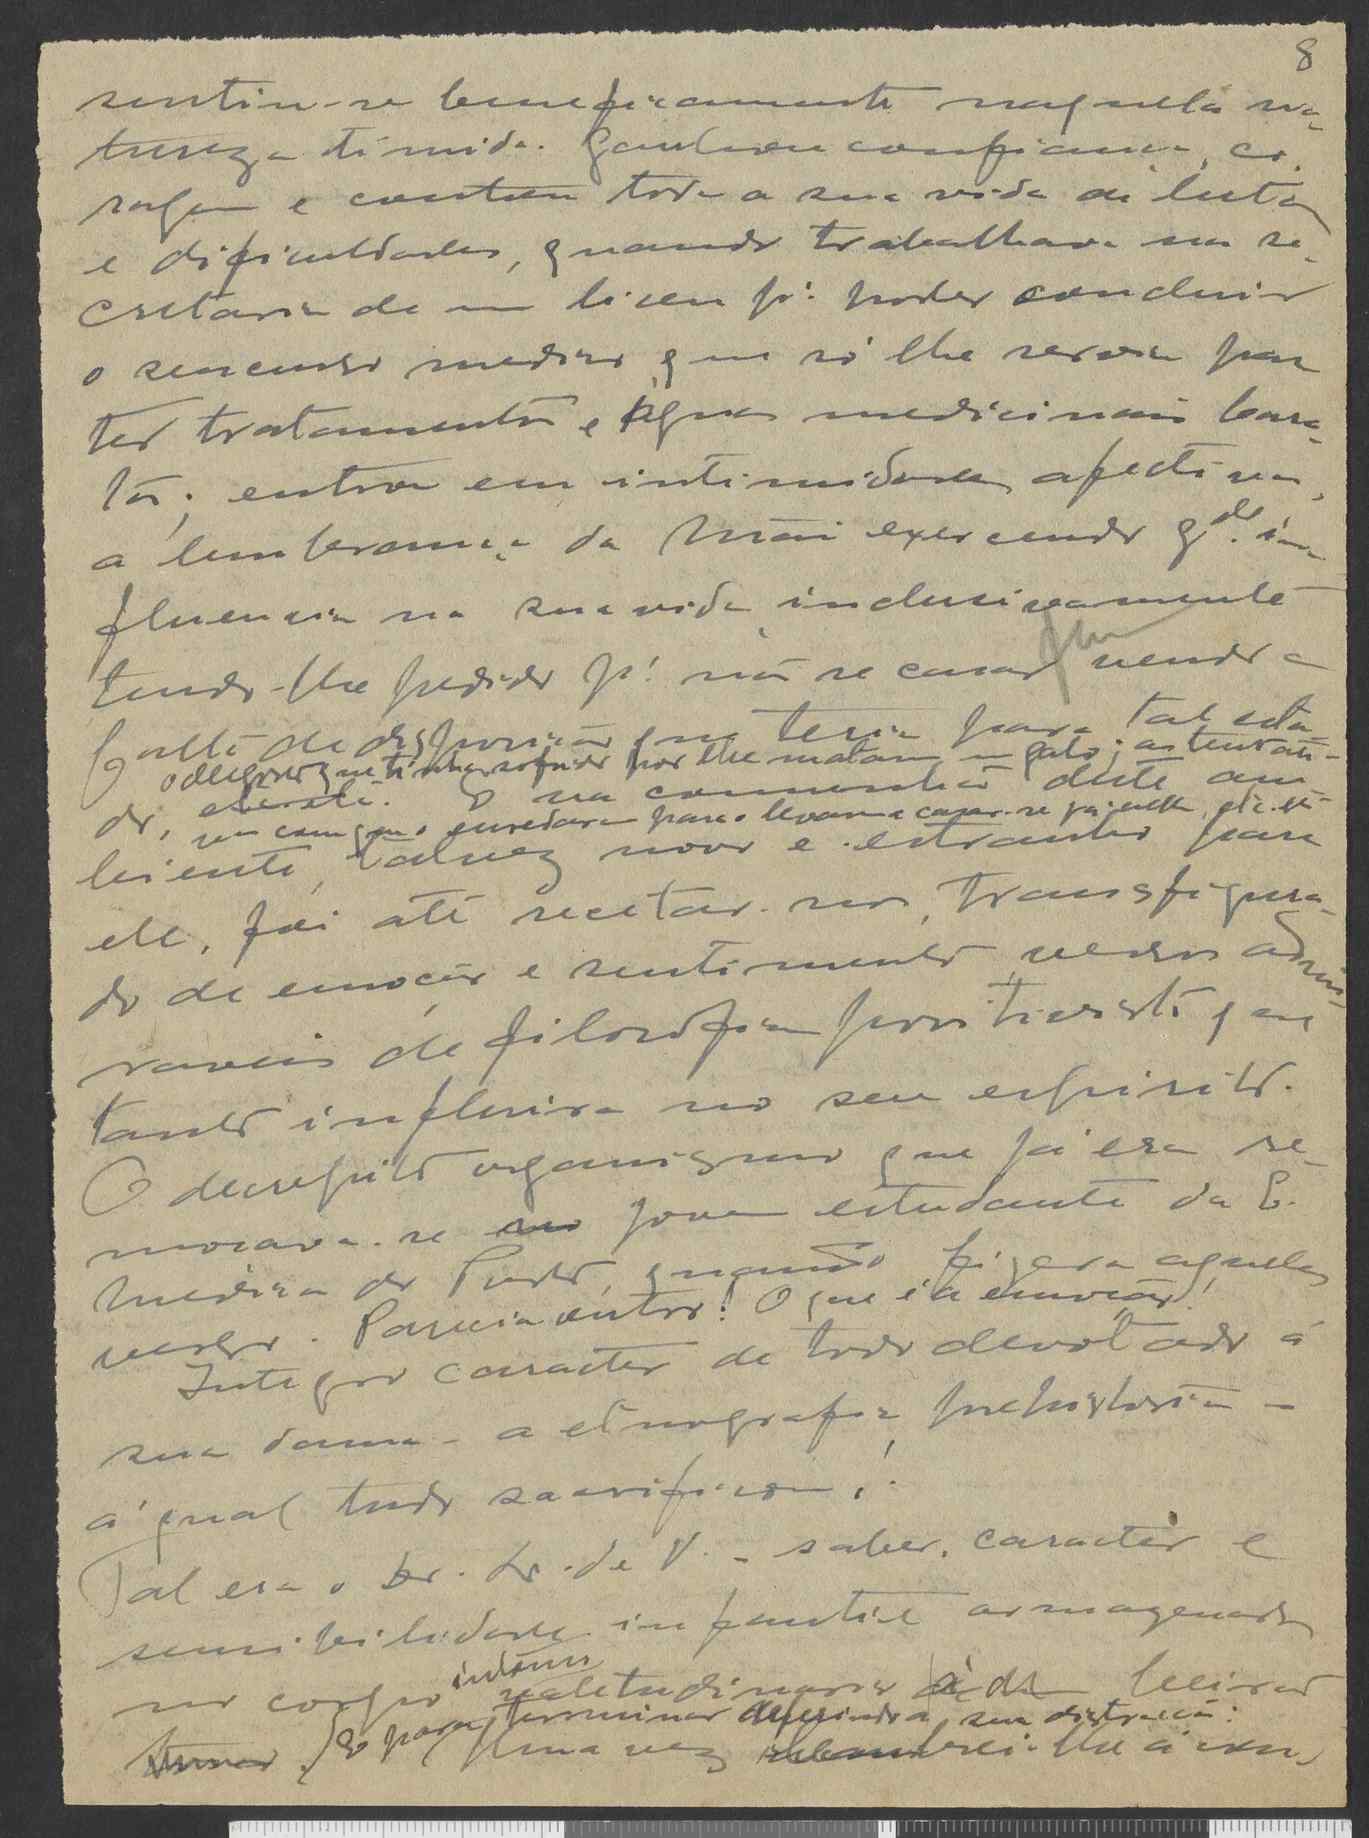 8
sentiu-se beneficamente naquela na-
tureza tímida. Ganhou confiança, co-
ragem e contou toda a sua vida de luta
e dificuldades, quando trabalhava na se-
cretaria de um liceu pª poder concluir
o seu curso medico que só lhe servia para
ter tratamento e águas medicinais bara-
tas; entrou em intimidades afectivas,
a lembrança da Mãi exercendo gde. in-
fluencia na sua vida, inclusivamente
tendo-lhe pedido pª não se casar vendo a
falta de disposição que teria para tal esta-
o desgosto que tinha sofrido por lhe matarem um gato; as tentati-
do, etc. etc. E na comunhão deste am-
vas com que o enredaram para o levarem a casar-se etc. etc.
biente, talvez novo e estranho para
ele, foi até recitar-nos, transfigura-
do de emoção e sentimento, versos admi-
raveis de filosofia positivista que
tanto influira no seu espirito.
O decrepito organismo que já era re-
moçava-se no jovem estudante da E.
Médica do Porto, quando fizera aqueles
versos. Parecia outro! O que é a emoção!
Integro caracter de todo devotado á
sua dama - a etnografia prehistoria -
á qual tudo sacrificou!
Tal era o Dr. L. de V. - saber, caracter e
sensibilidade infantil armazenados
no corpo valetudinario
E para terminar sua distracção:
Uma vez lhe á